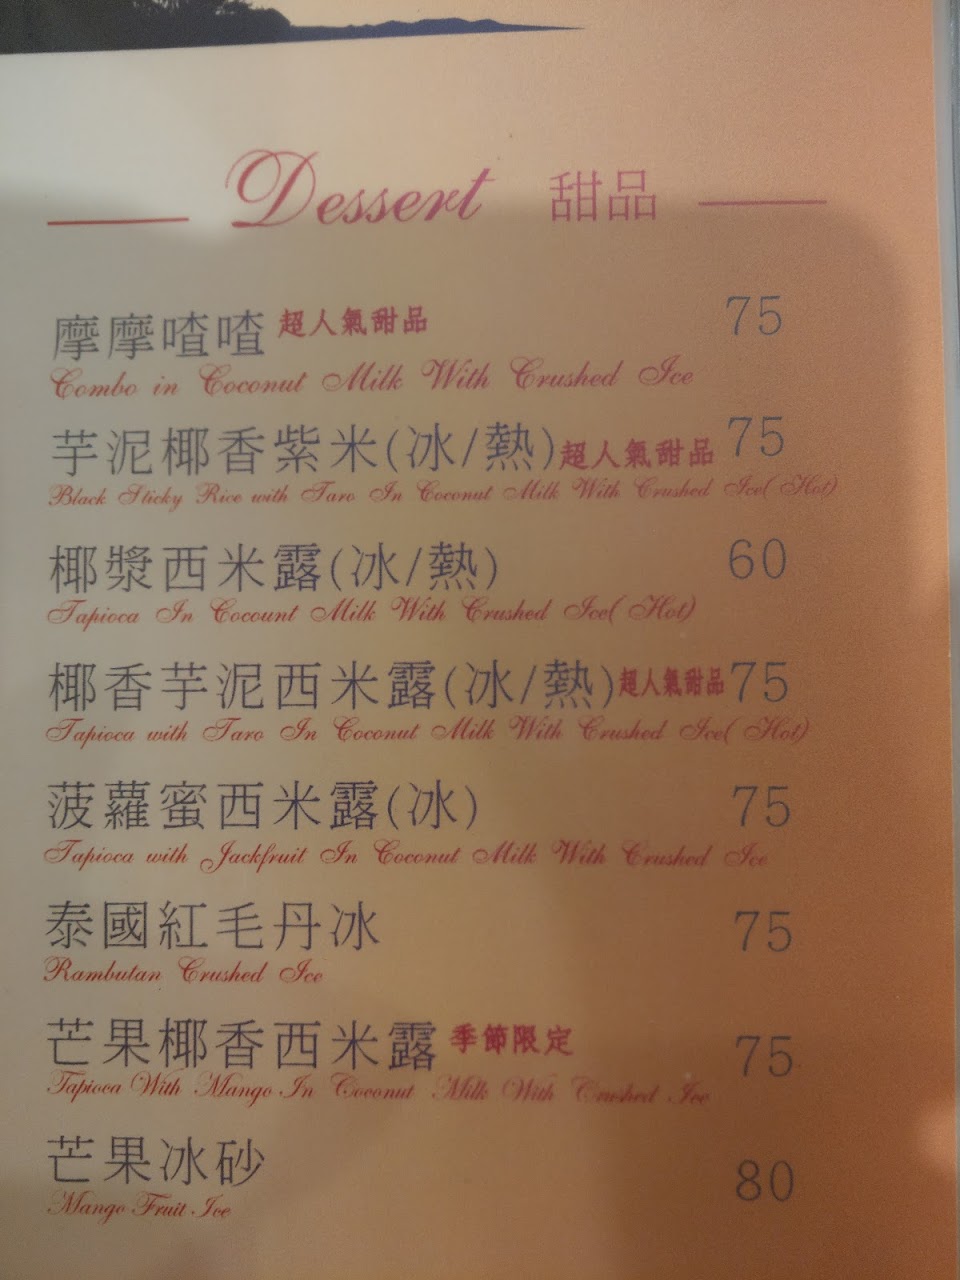 Dessert 甜品
摩摩喳喳 超人氣甜品 75
Combo in Coconut Milk With Crushed Ice
芋泥椰香紫米(冰/熱)超人氣甜品 75
Black Sticky Rice with Taro In Coconut Milk With Crushed Ice( Hot)
椰漿西米露(冰/熱) 60
Tapioca In Cocount Milk With Crushed Ice( Hot)
椰香芋泥西米露(冰/熱)超人氣甜品 75
Tapioca with Taro In Coconut Milk With Crushed Ice( Hot)
菠蘿蜜西米露(冰) 75
Tapioca with Jackfruit In Coconut Milk With Crushed Ice
泰國紅毛丹冰 75
Rambutan Crushed Ice
芒果椰香西米露 季節限定 75
Tapioca With Mango In Coconut Milk With Crushed Ice
芒果冰砂 80
Mango Fruit Ice